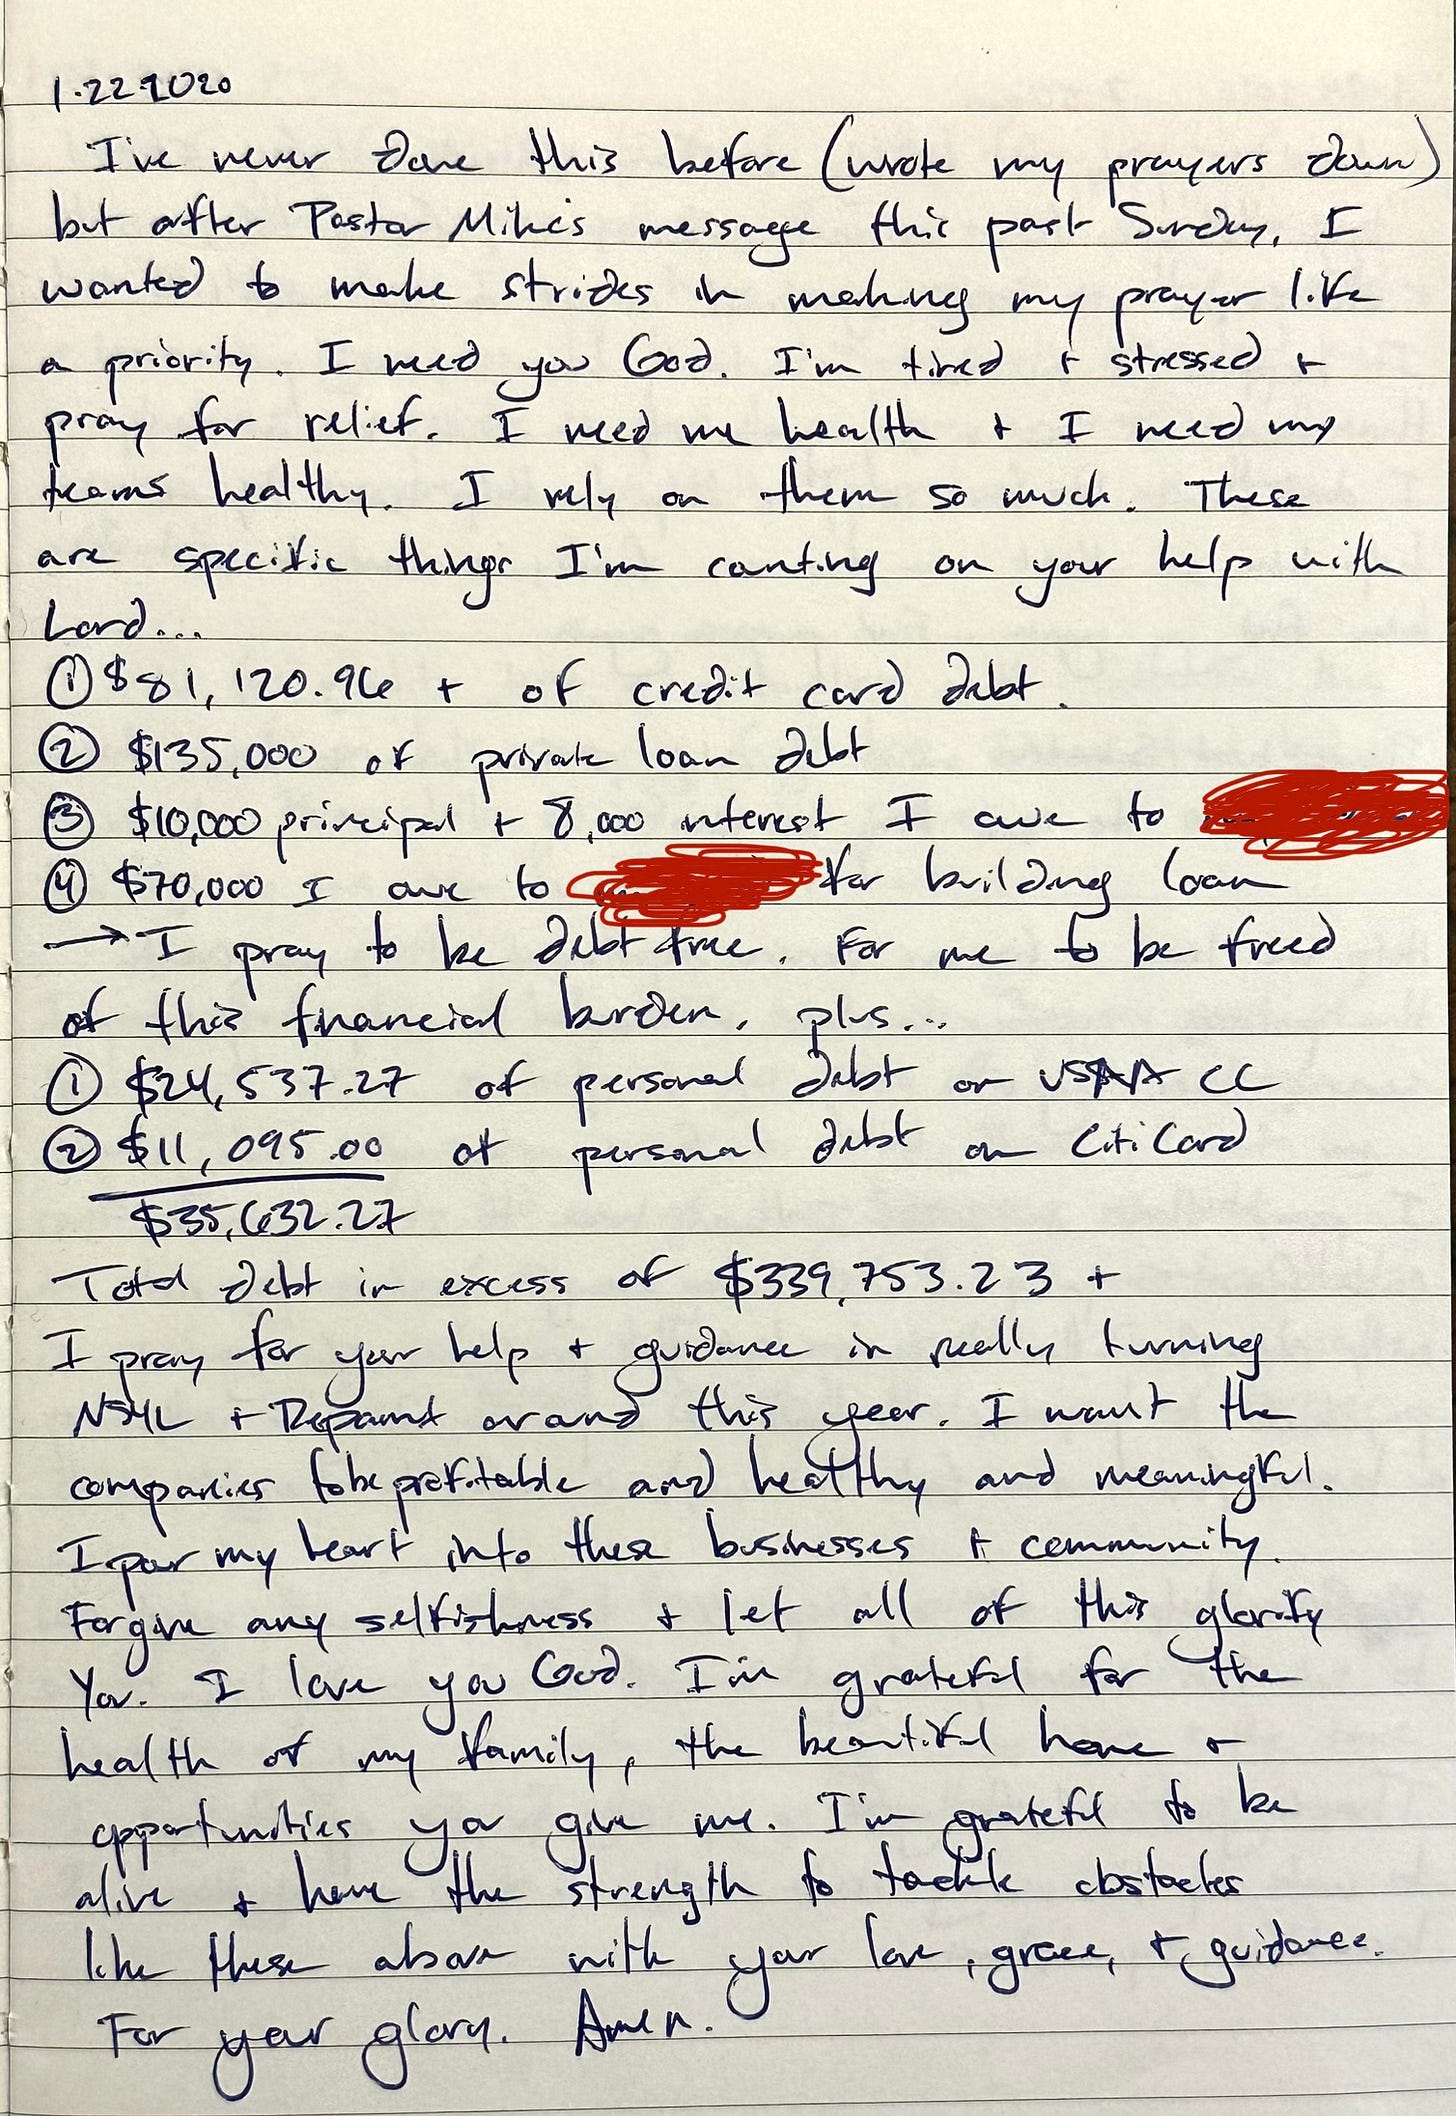 1.22.2020
I've never done this before (wrote my prayers down)
but after Pastor Mike's message this past Sunday, I
wanted to make strides in making my prayer life
a priority. I need you God. I'm tired + stressed +
pray for relief. I need me health + I need my
teams healthy. I rely on them so much. These
are specific things I'm counting on your help with
Lord...
① $81,120.96 + of credit card debt.
② $135,000 of private loan debt
③ $10,000 principal + 8,000 interest I owe to
④ $70,000 I owe to for building loan
→ I pray to be debt free. For me to be freed
of this financial burden, plus...
① $24,537.27 of personal debt on USAA CC
② $11,095.00 of personal debt on Citi Card
$35,632.27
Total debt in excess of $339,753.23 +
I pray for your help + guidance in really turning
NSYL + around this year. I want the
companies to be profitable and healthy and meaningful.
I pour my heart into these businesses + community.
Forgive any selfishness + let all of this glorify
You. I love you God. I'm grateful for the
health of my family, the beautiful home +
opportunities you give me. I'm grateful to be
alive + have the strength to tackle obstacles
like these above with your love, grace, + guidance.
For your glory. Amen.